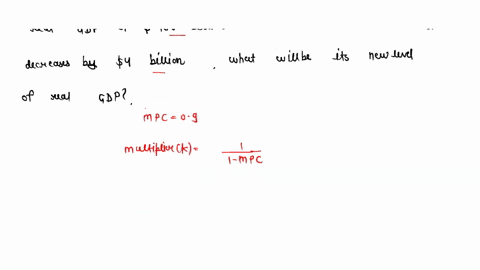 real GDP of $
decreases by $4 billion . what will be its new level
of real GDP?
MPC = 0.9
multiplier(k) = 1
1-MPC